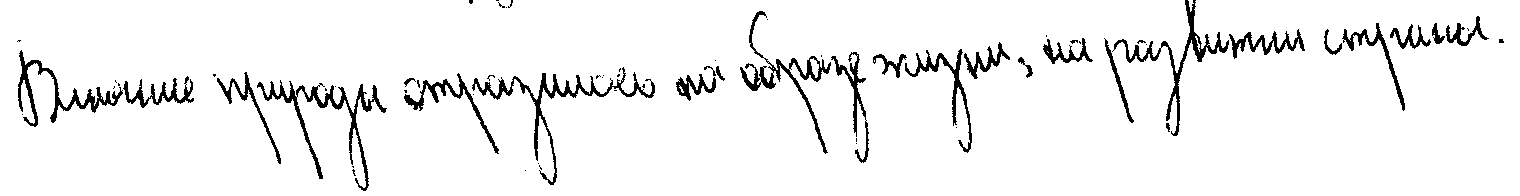 Влияние природы отразилось на образе жизни, на развитии страны.